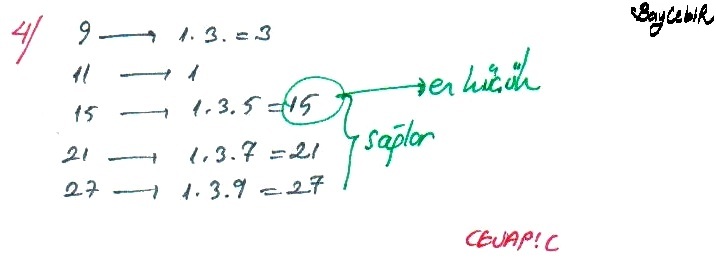 BayCebiR
4) 9 → 1.3. = 3
11 → 1
15 → 1.3.5 = 15 → en küçük
21 → 1.3.7 = 21
27 → 1.3.9 = 27
sağlar
CEVAP: C